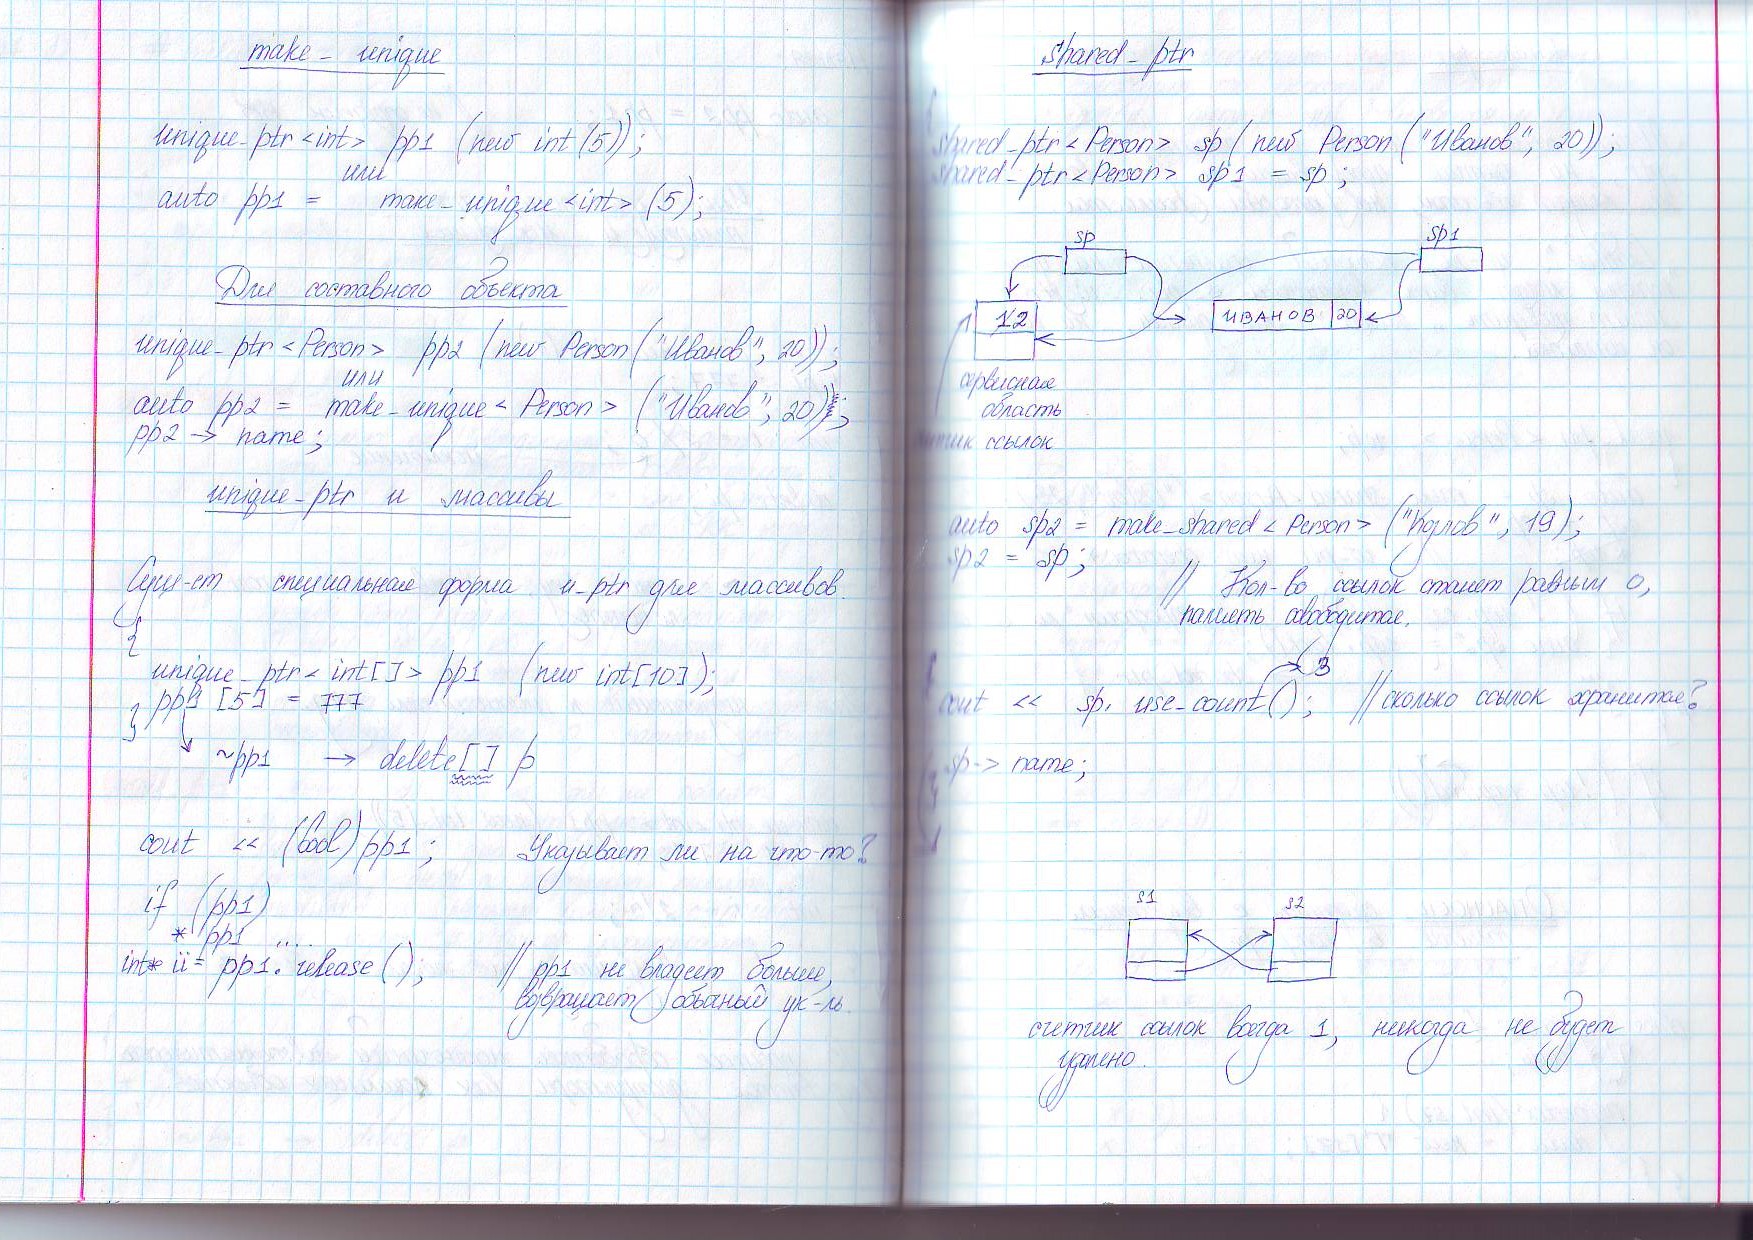 make_unique
unique_ptr <int> pp1 (new int (5));
или
auto pp1 = make_unique <int> (5);
Для составного объекта
unique_ptr <Person> pp2 (new Person ("Иванов", 20));
или
auto pp2 = make_unique <Person> ("Иванов", 20);
pp2 -> name;
unique_ptr и массивы
Сущ-ет специальная форма u-ptr для массивов.
{
unique_ptr <int[]> pp1 (new int[10]);
pp1 [5] = 777
}
~pp1 → delete[] p
cout << (bool) pp1; Указывает ли на что-то?
if (pp1)
* pp1 ....
int* ii = pp1.release(); // pp1 не владеет больше,
возвращает обычный ук-ль.
shared_ptr
{
shared_ptr <Person> sp (new Person ("Иванов", 20));
shared_ptr <Person> sp1 = sp;
sp sp1
12 ИВАНОВ 20
сервисная
область
ссылок
auto sp2 = make_shared <Person> ("Козлов", 19);
sp2 = sp;
// Кол-во ссылок станет равным 0,
память освободится.
3
cout << sp. use_count(); // сколько ссылок хранится?
sp -> name;
s1 s2
счетчик ссылок всегда 1, никогда не будет
удалено.